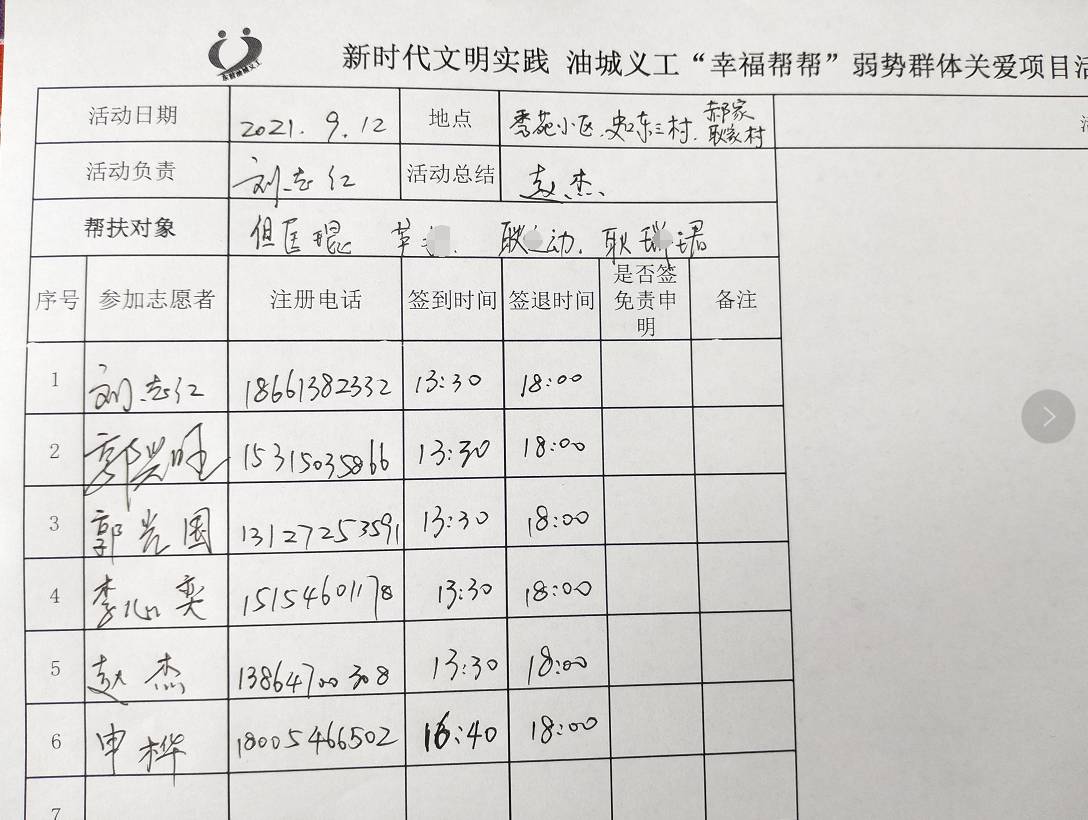 东营油城义工
新时代文明实践 油城义工“幸福帮帮”弱势群体关爱项目活
活动日期 2021.9.12 地点 秀苑小区.史口东三村.郝家耿家村
活动负责 刘志红 活动总结 赵杰.
帮扶对象 但 耿 动. 耿瑞珺
序号 参加志愿者 注册电话 签到时间 签退时间 是否签免责申明 备注
1 刘志红 18661382332 13:30 18:00
2 郭兴旺 15315035866 13:30 18:00
3 郭光国 13127253591 13:30 18:00
4 李心奕 15154601178 13:30 18:00
5 赵杰 13864700308 13:30 18:00
6 申桦 18005466502 16:40 18:00
7